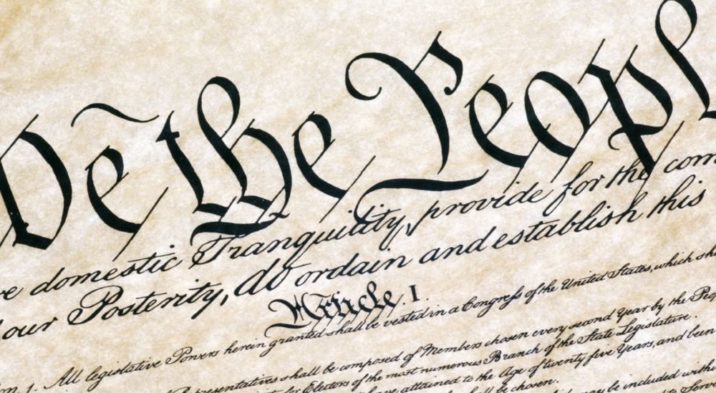 We the People
domestic Tranquility, provide for the com
our Posterity, do ordain and establish this
Article. I.
1. All legislative Powers herein granted shall be vested in a Congress of the United States, which sha
shall be composed of Members chosen every second Year by the Peo
for Electors of the most numerous Branch of the State Legislature.
have attained to the Age of twenty five Years, and been
shall be chosen.
may be included within